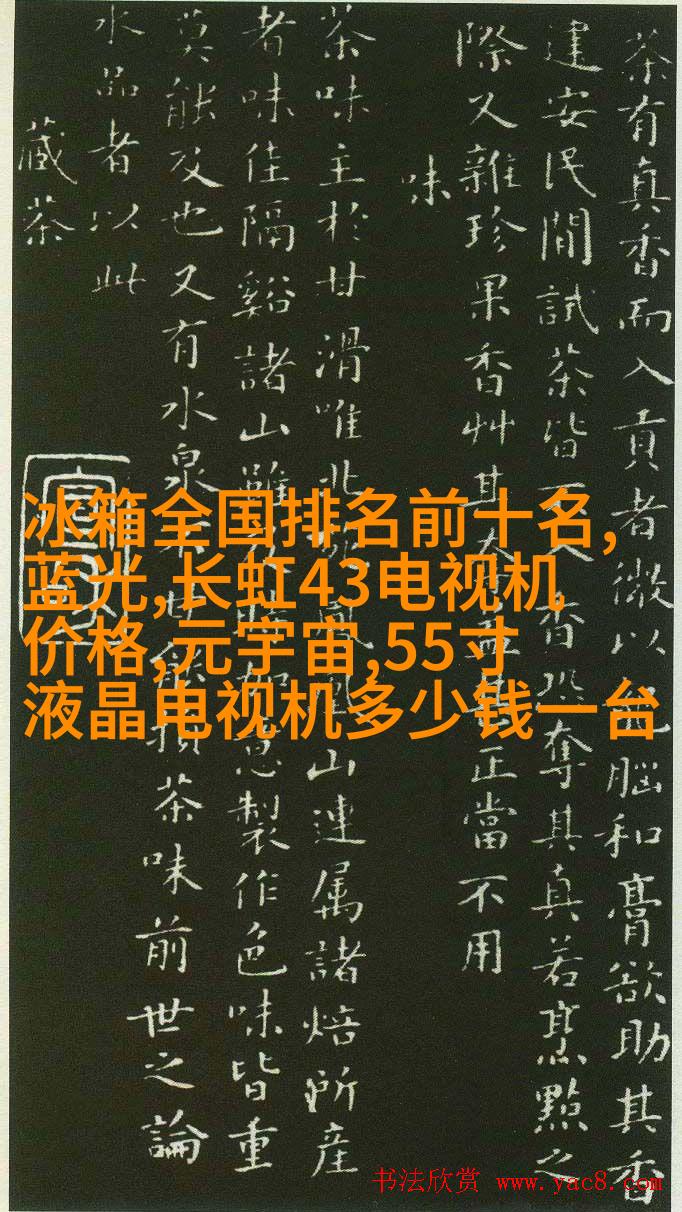 茶有真香而入貢者微以腦和膏欲助其香
建安民間試茶皆不入香恐奪其真若烹點之
際又雜珍果香艸其奪益甚正當不用
味
茶味主於甘滑唯北苑鳳凰山連屬諸焙所產
者味佳隔谿諸山雖意製作色味皆重
莫能及也又有水泉不甘能損茶味前世之論
水品者以此
藏茶
冰箱全国排名前十名,
蓝光,长虹43电视机
价格,元宇宙,55寸
液晶电视机多少钱一台
书法欣赏 www.yac8.com